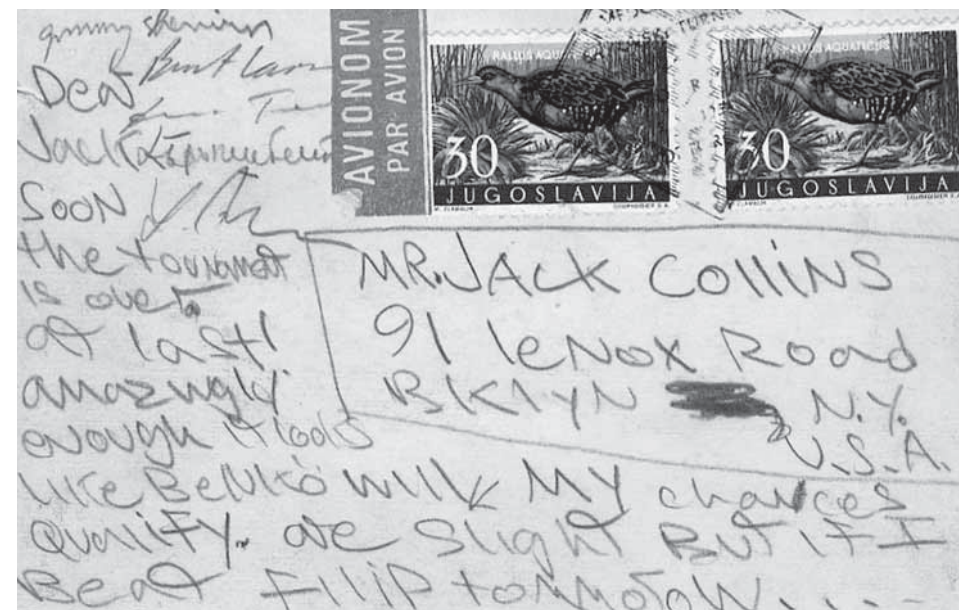 Jimmy Sherwin
Dear
Jack
Soon
the tournament
is over
at last!
amazingly
enough it looks
like Benko will
Qualify. My chances
are slight But if I
Beat Filip tommorow....
AVIONOM
PAR AVION
RALLUS AQUATICUS
30
JUGOSLAVIJA
RALLUS AQUATICUS
30
JUGOSLAVIJA
MR. JACK COLLINS
91 lenox Road
BKlyN N.Y.
U.S.A.